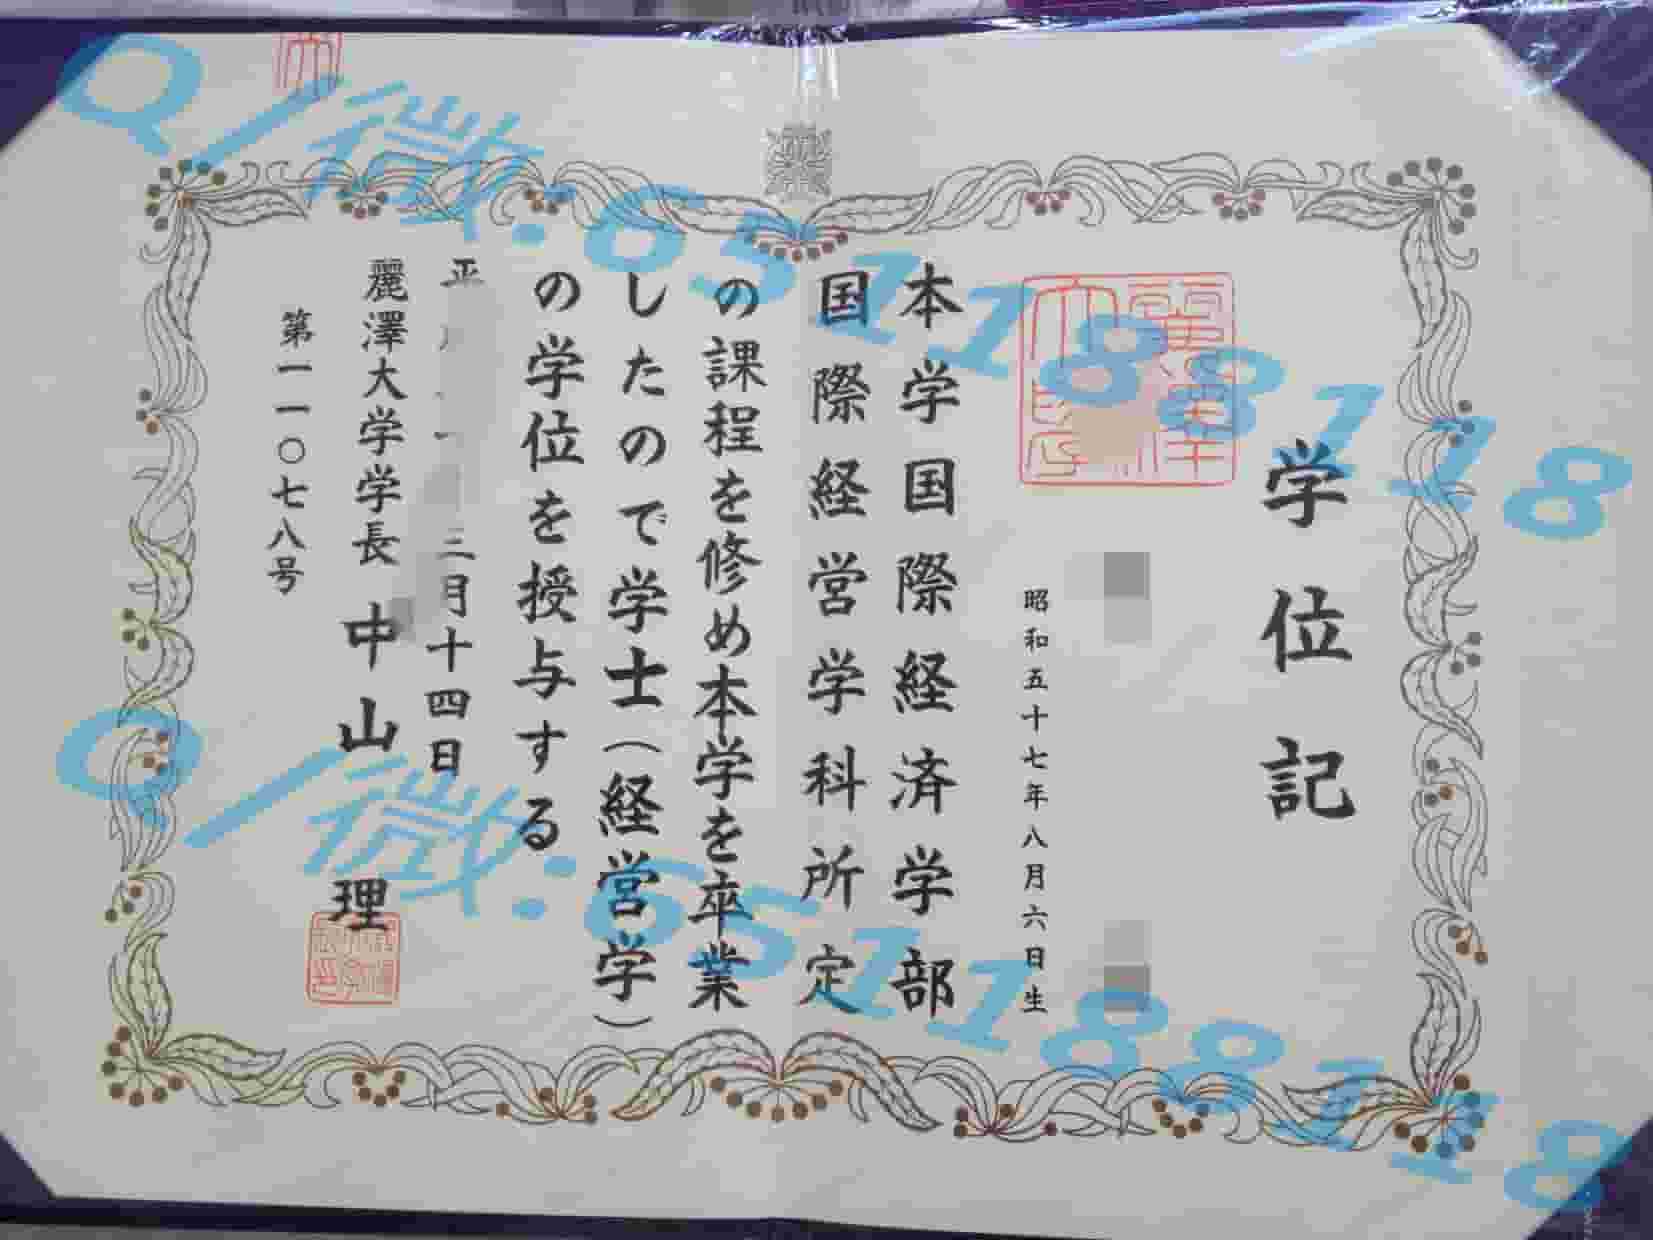 学位記
昭和五十七年八月六日生
本学国際経済学部
国際経営学科所定
の課程を修め本学を卒業
したので学士（経営学）
の学位を授与する
平 三月十四日
麗澤大学学長 中山 理
第一一〇七八号
Q/微:6511881118
Q/微:6511881118